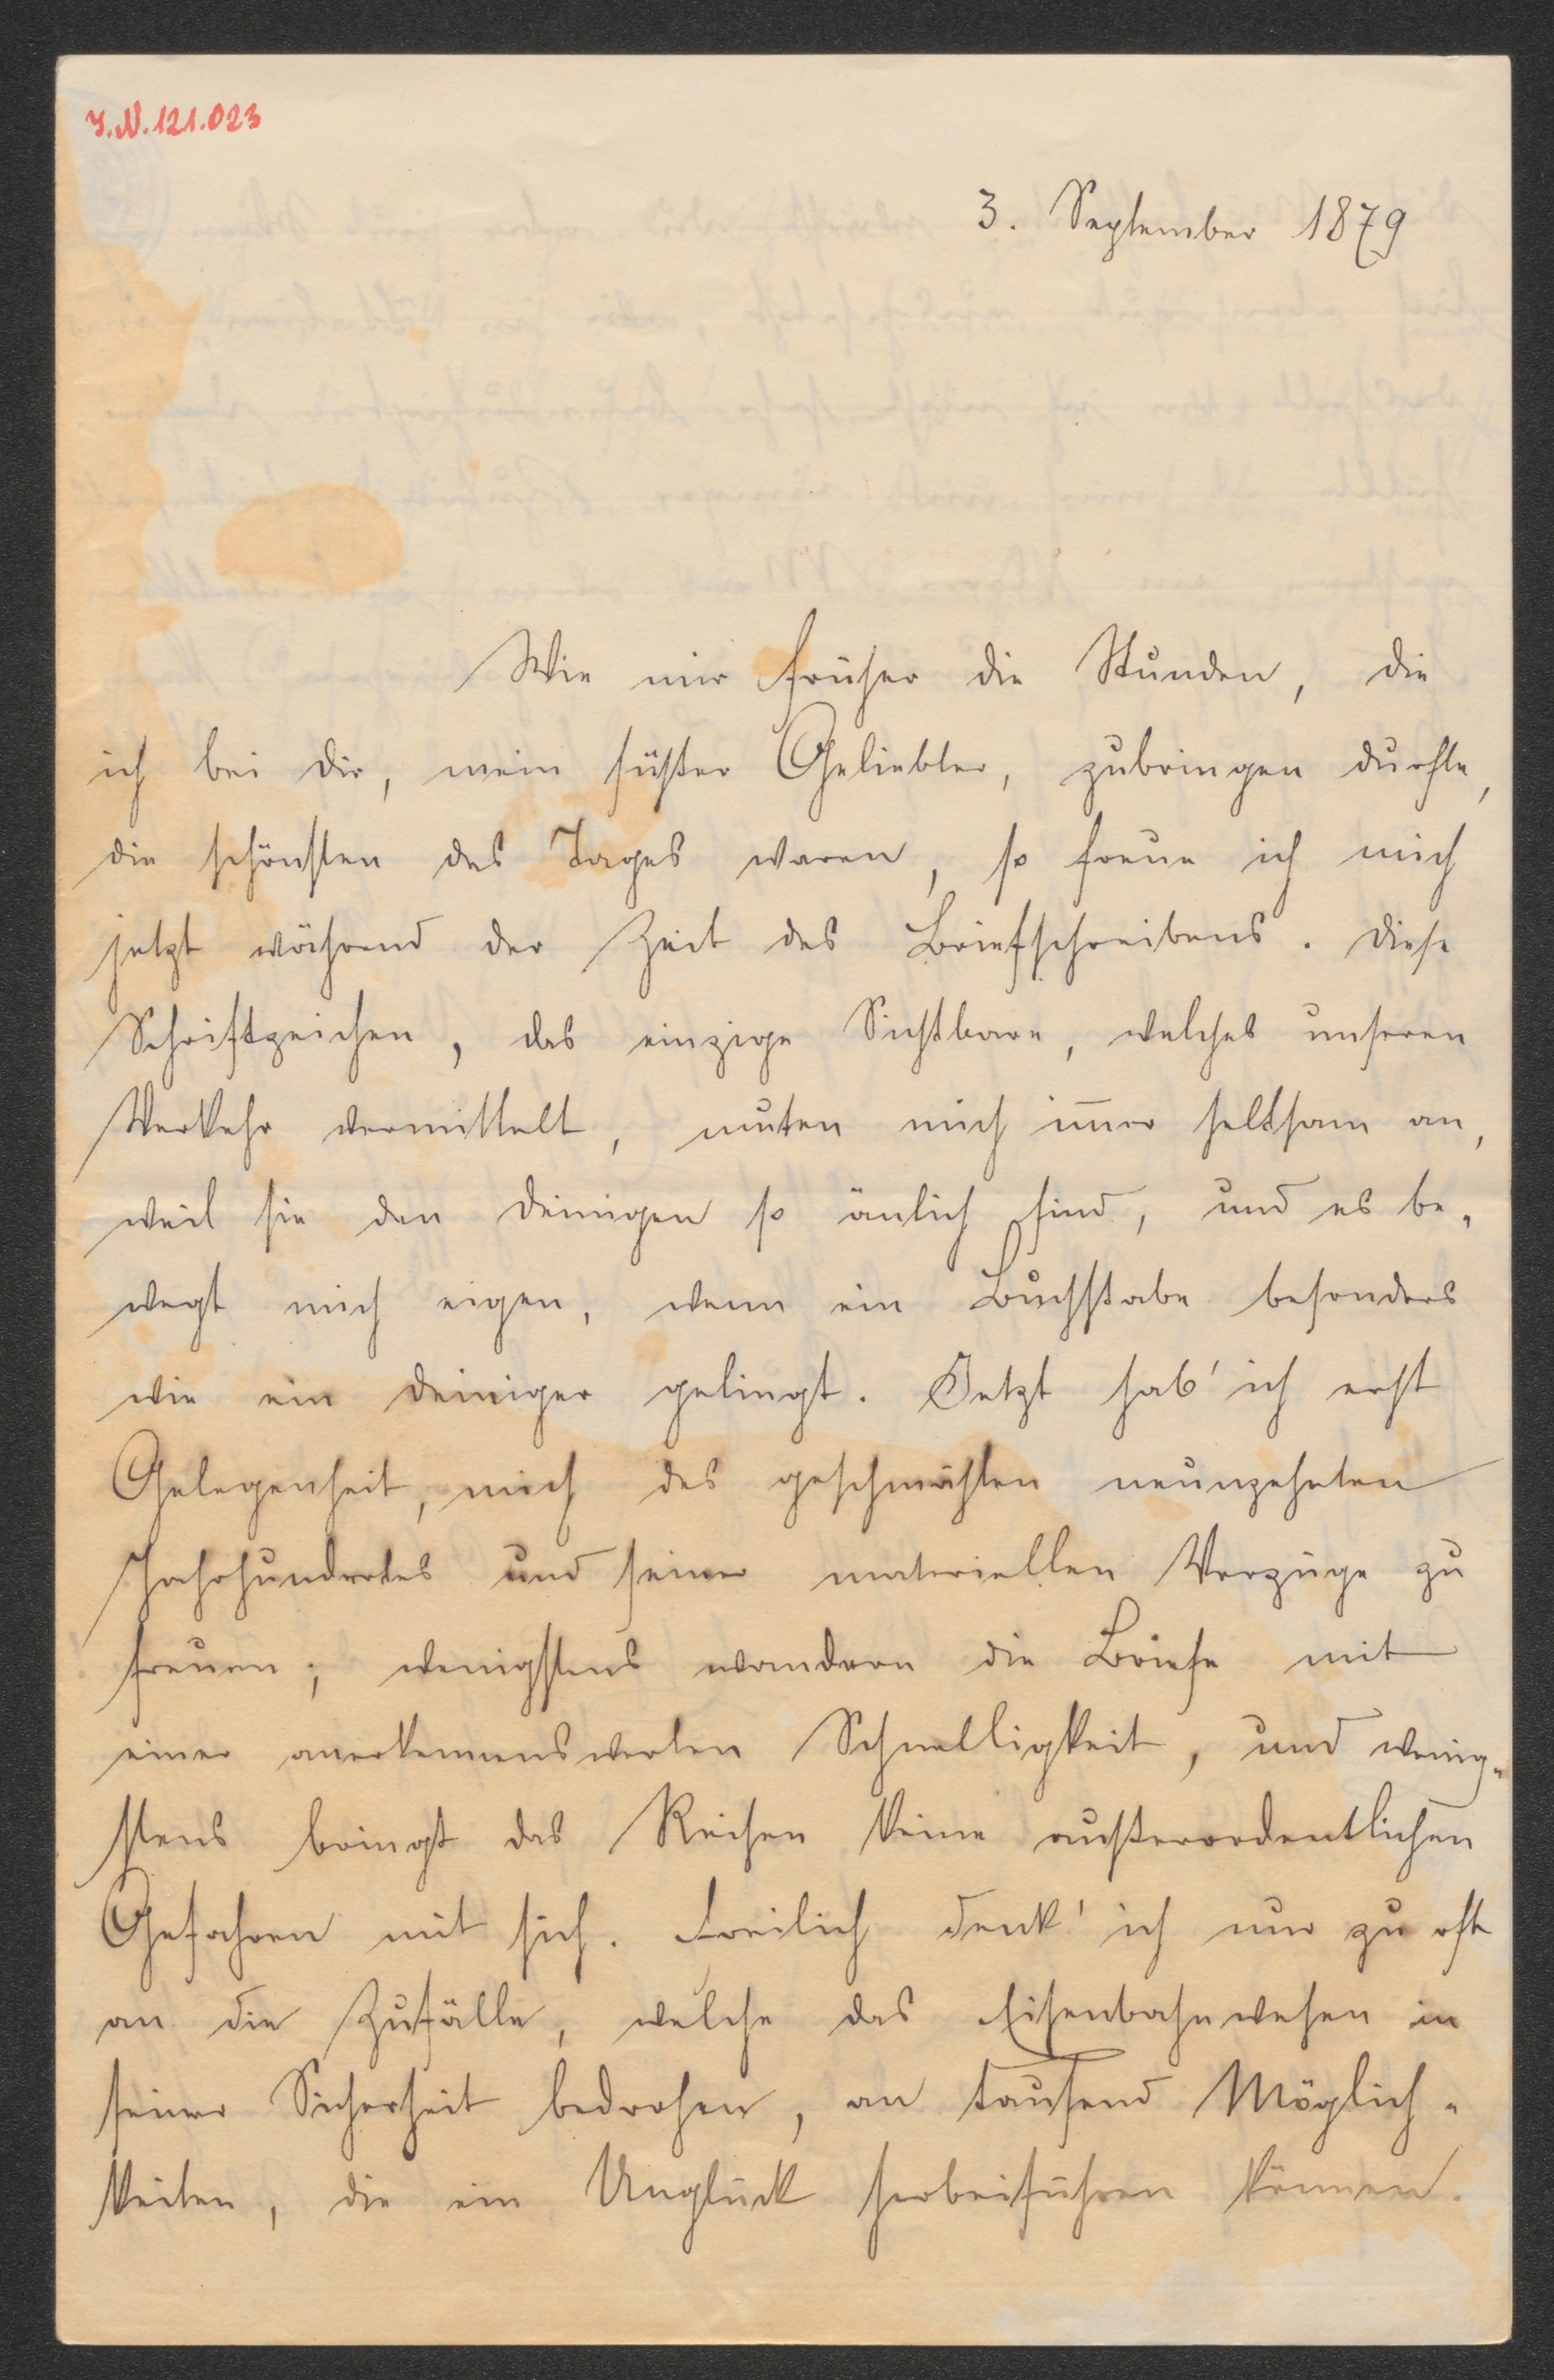 J.N. 121.023
3. September 1879
Wie mir früher die Stunden, die
ich bei dir, mein süßer Geliebter, zubringen durfte,
die schönsten des Tages waren, so freue ich mich
jetzt während der Zeit des Briefschreibens. Diese
Schriftzeichen, das einzige Sichtbare, welches unseren
Verkehr vermittelt, muten mich im̅er seltsam an,
weil sie den deinigen so änlich sind, und es be-
wegt mich eigen, wenn ein Buchstabe besonders
wie ein deiniger gelingt. Jetzt hab' ich erst
Gelegenheit, mich des geschmähten neunzehnten
Jahrhundertes und seiner materiellen Vorzüge zu
freuen; wenigstens wandern die Briefe mit
einer anerkennenswerten Schnelligkeit, und wenig-
stens bringt das Reisen keine außerordentlichen
Gefahren mit sich. Freilich denk' ich nur zu oft
an die Zufälle, welche das Eisenbahnwesen in
seiner Sicherheit bedrohen, an tausend Möglich-
keiten, die ein Unglück herbeiführen können.